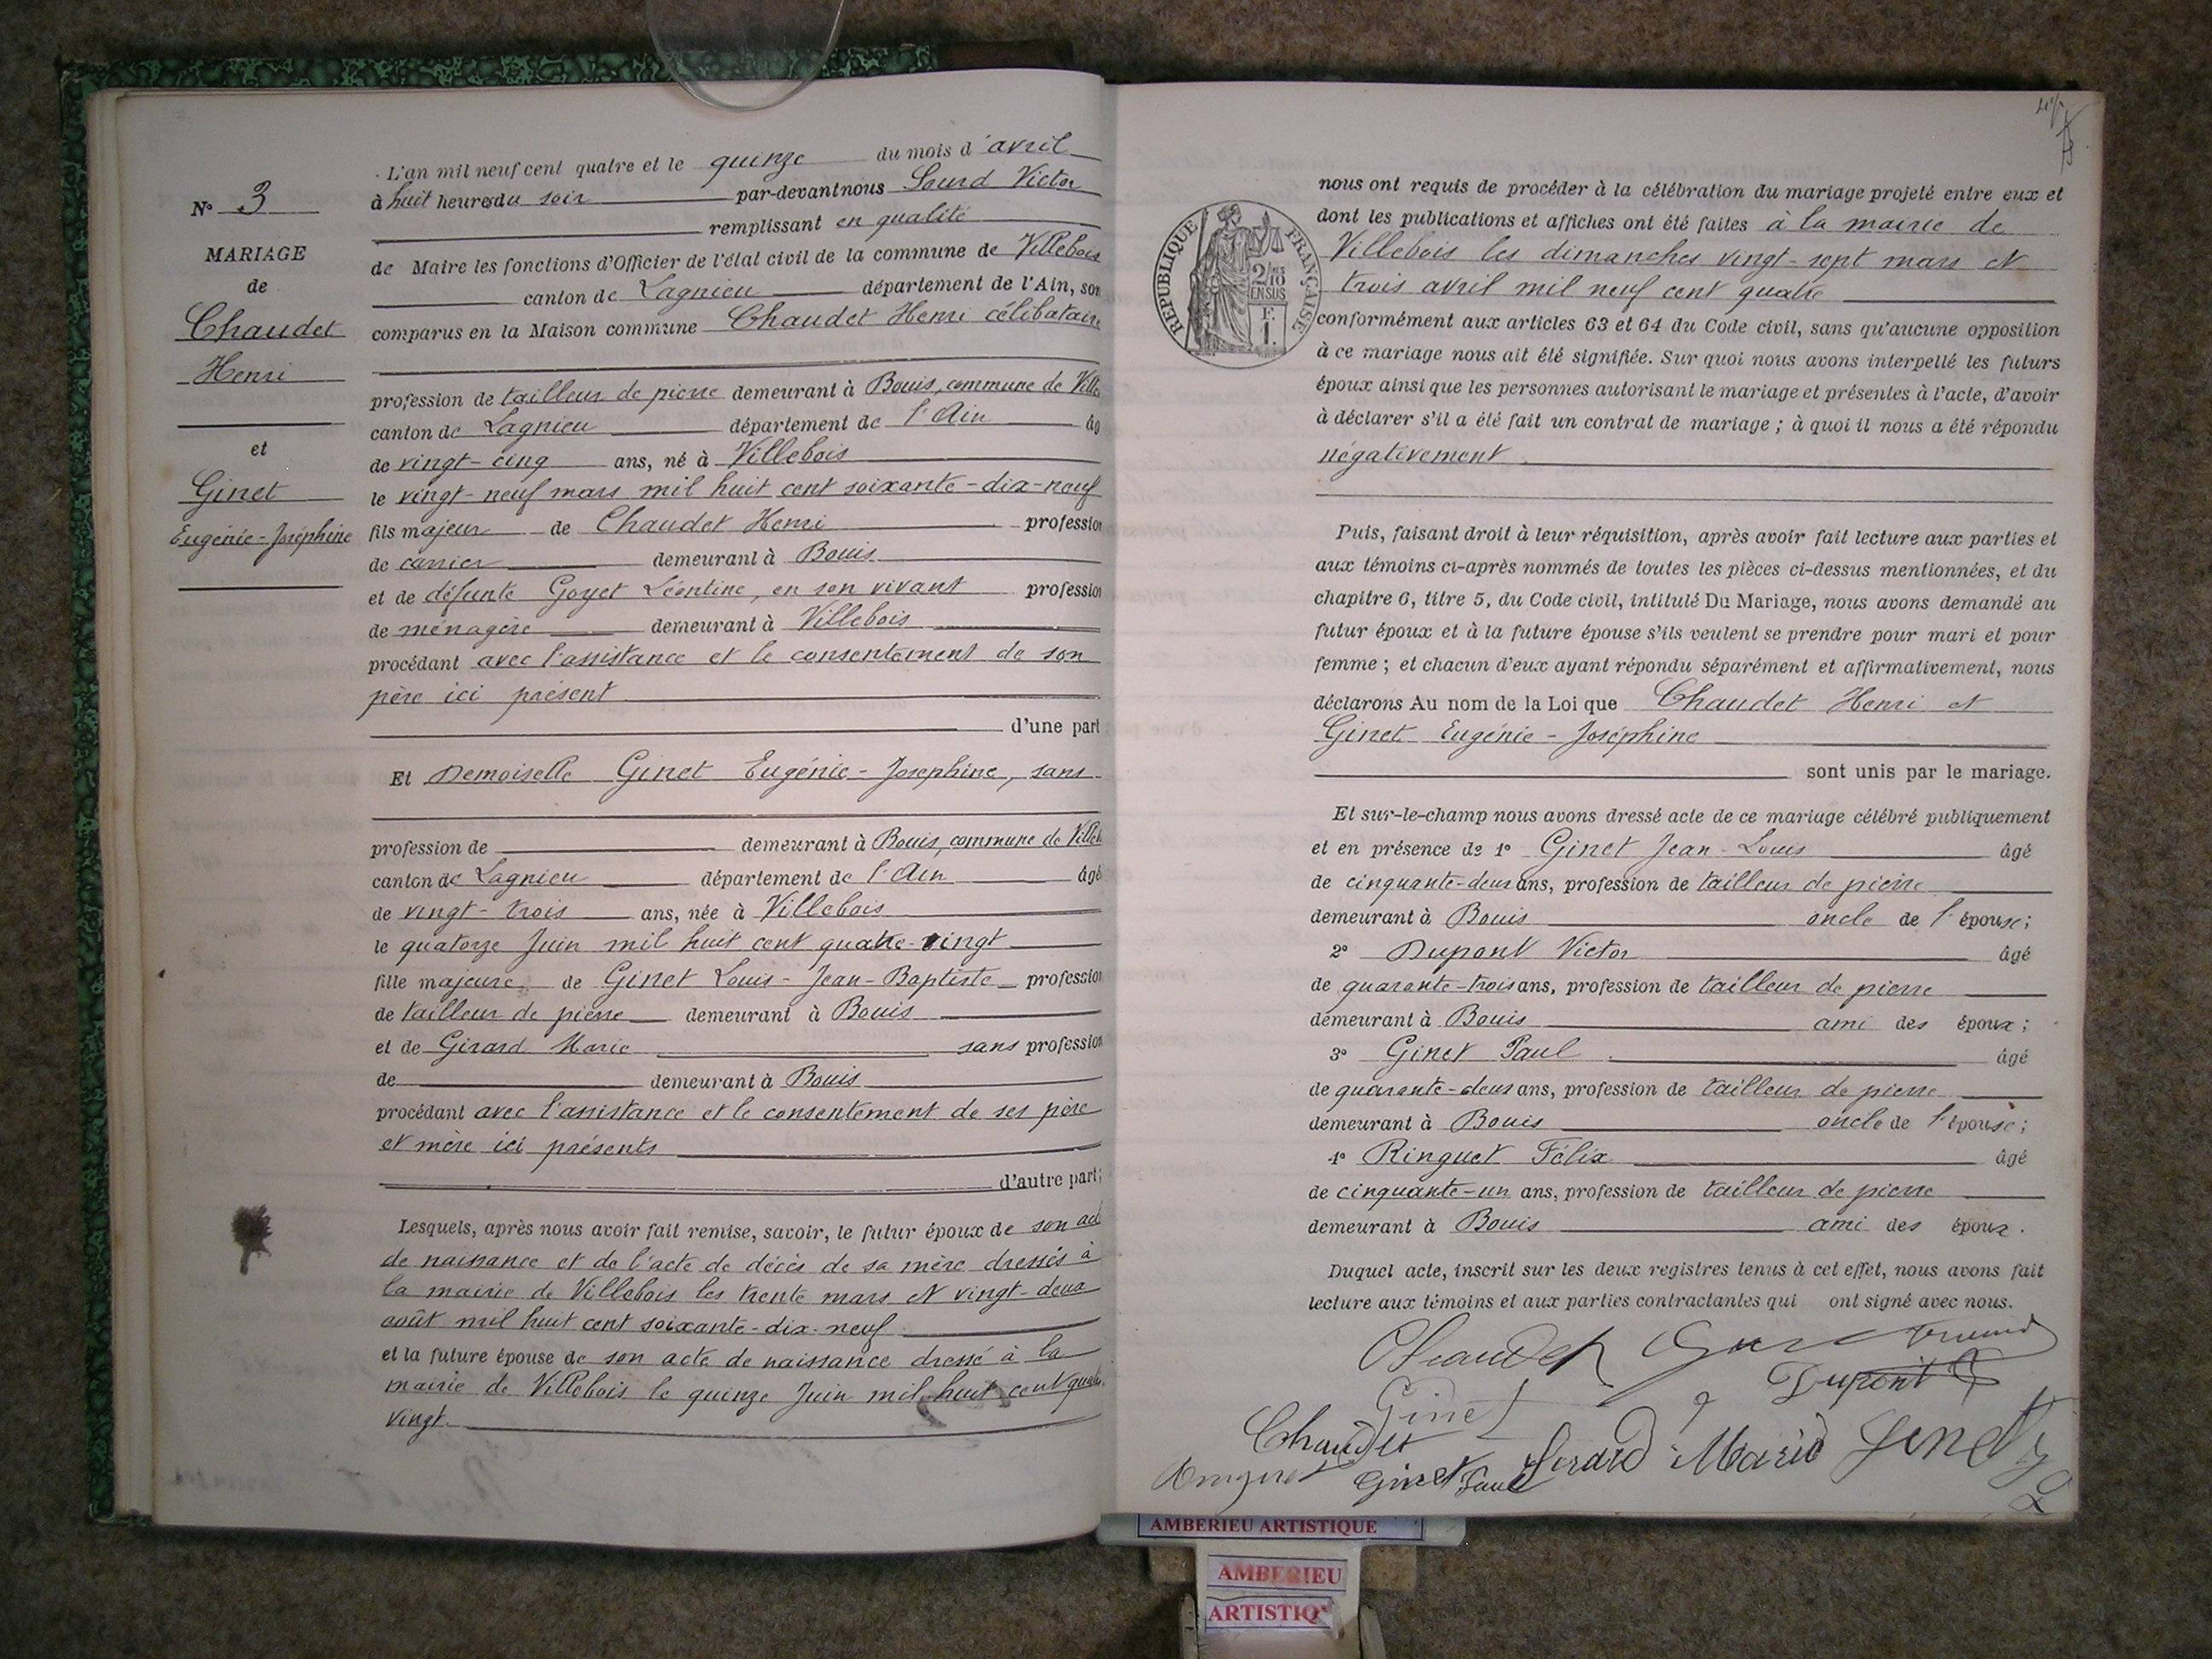 N° 3
MARIAGE
de
Chaudet
Henri
et
Ginet
Eugénie-Joséphine
L'an mil neuf cent quatre et le quinze du mois d'avril
à huit heures du soir par-devant nous Sourd Victor
remplissant en qualité
de Maire les fonctions d'Officier de l'état civil de la commune de Villebois
canton de Lagnieu département de l'Ain, son
comparus en la Maison commune Chaudet Henri célibataire
profession de tailleur de pierre demeurant à Bouis, commune de Ville
canton de Lagnieu département de l'Ain âg
de vingt-cinq ans, né à Villebois
le vingt-neuf mars mil huit cent soixante-dix-neuf
fils majeur de Chaudet Henri profession
de carrier demeurant à Bouis
et de défunte Goyet Léontine, en son vivant profession
de ménagère demeurant à Villebois
procédant avec l'assistance et le consentement de son
père ici présent
d'une part
Et Demoiselle Ginet Eugénie-Josephine, sans
profession de demeurant à Bouis, commune de Villeb
canton de Lagnieu département de l'Ain âgé
de vingt-trois ans, née à Villebois
le quatorze Juin mil huit cent quatre-vingt
fille majeure de Ginet Louis-Jean-Baptiste profession
de tailleur de pierre demeurant à Bouis
et de Girard Marie sans profession
de demeurant à Bouis
procédant avec l'assistance et le consentement de ses père
et mère ici présents
d'autre part;
Lesquels, après nous avoir fait remise, savoir, le futur époux de son act
de naissance et de l'acte de décès de sa mère dressés à
la mairie de Villebois les trente mars et vingt-deux
août mil huit cent soixante-dix-neuf
et la future épouse de son acte de naissance dressé à la
mairie de Villebois le quinze Juin mil huit cent quatre
vingt
RÉPUBLIQUE FRANÇAISE
2/10
EN SUS
F.
1.
nous ont requis de procéder à la célébration du mariage projeté entre eux et
dont les publications et affiches ont été faites à la mairie de
Villebois les dimanches vingt-sept mars et
trois avril mil neuf cent quatre
conformément aux articles 63 et 64 du Code civil, sans qu'aucune opposition
à ce mariage nous ait été signifiée. Sur quoi nous avons interpellé les futurs
époux ainsi que les personnes autorisant le mariage et présentes à l'acte, d'avoir
à déclarer s'il a été fait un contrat de mariage ; à quoi il nous a été répondu
négativement
Puis, faisant droit à leur réquisition, après avoir fait lecture aux parties et
aux témoins ci-après nommés de toutes les pièces ci-dessus mentionnées, et du
chapitre 6, titre 5, du Code civil, intitulé Du Mariage, nous avons demandé au
futur époux et à la future épouse s'ils veulent se prendre pour mari et pour
femme ; et chacun d'eux ayant répondu séparément et affirmativement, nous
déclarons Au nom de la Loi que Chaudet Henri et
Ginet Eugénie-Joséphine
sont unis par le mariage.
Et sur-le-champ nous avons dressé acte de ce mariage célébré publiquement
et en présence de 1° Ginet Jean-Louis âgé
de cinquante-deux ans, profession de tailleur de pierre
demeurant à Bouis oncle de l'épouse;
2° Dupont Victor âgé
de quarante-trois ans, profession de tailleur de pierre
demeurant à Bouis ami des époux;
3° Ginet Paul âgé
de quarante-deux ans, profession de tailleur de pierre
demeurant à Bouis oncle de l'épouse;
4° Ringuet Félix âgé
de cinquante-un ans, profession de tailleur de pierre
demeurant à Bouis ami des époux.
Duquel acte, inscrit sur les deux registres tenus à cet effet, nous avons fait
lecture aux témoins et aux parties contractantes qui ont signé avec nous.
Chaudet
Dupont
Ginet
Chaudet
Girard Marie Ginet
Ginet Paul
AMBERIEU ARTISTIQUE
AMBERIEU
ARTISTIQ